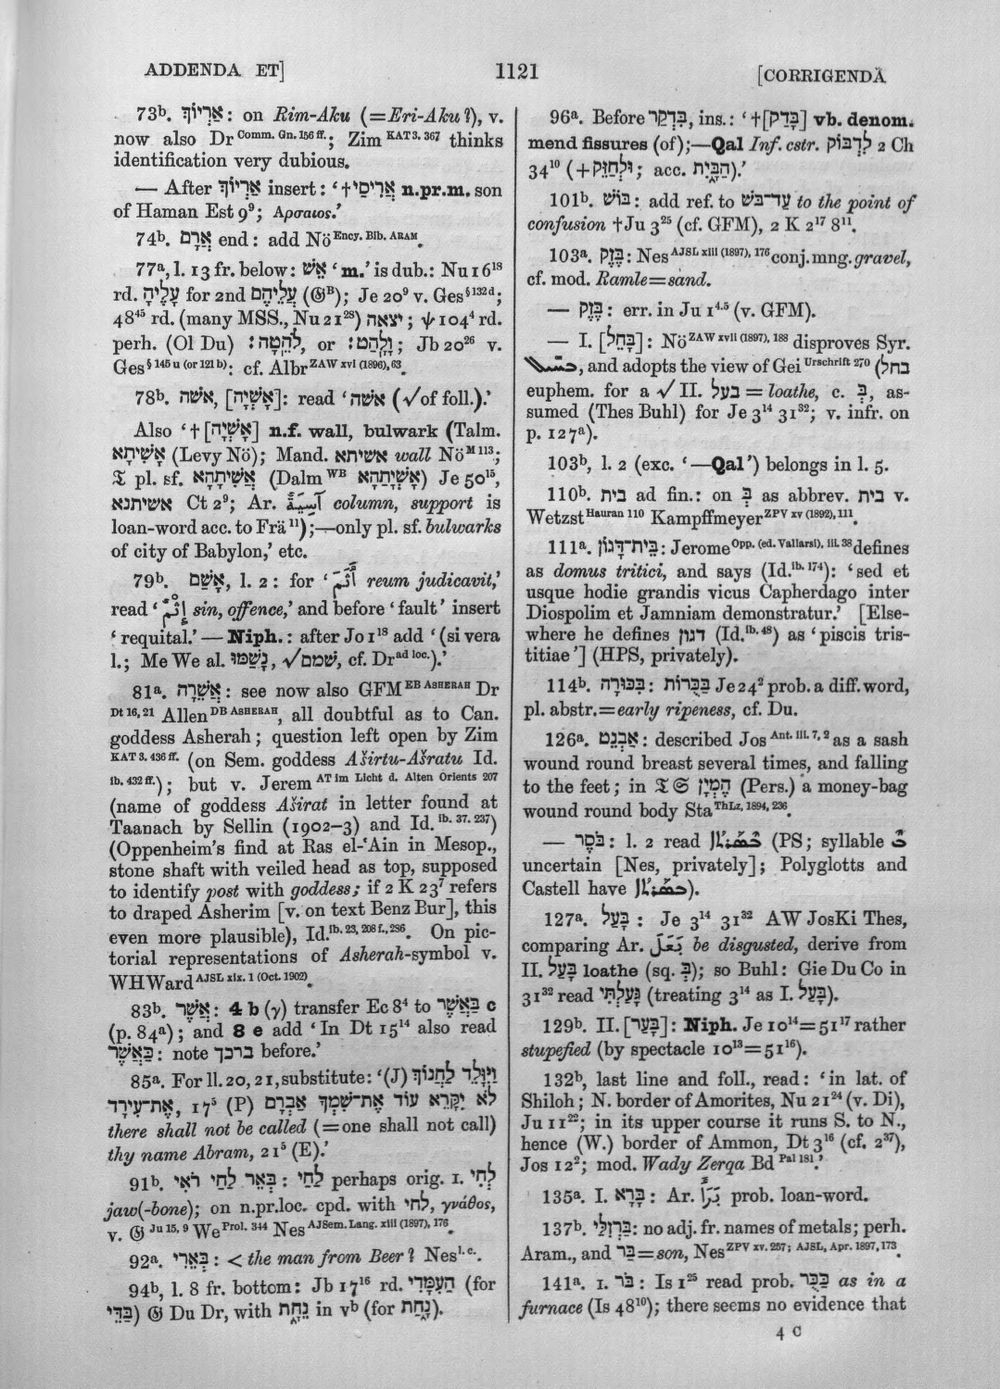 ADDENDA ET]
1121
[CORRIGENDA
73b. אַרְיוֹךְ: on Rim-Aku (=Eri-Aku?), v.
now also Dr Comm. Gn. 156 ff.; Zim KAT 3. 367 thinks
identification very dubious.
— After אַרְיוֹךְ insert: ‘†אֲרִיסַי n.pr.m. son
of Haman Est 9⁹; Αρσαιος.’
74b. אֲרָם end: add Nö Ency. Bib. ARAM.
77a, l. 13 fr. below: אֵשׁ ‘m.’ is dub.: Nu 16¹⁸
rd. עָלֶיהָ for 2nd עֲלֵיהֶם (𝔊B); Je 20⁹ v. Ges § 132 d;
48⁴⁵ rd. (many MSS., Nu 21²⁸) יצאה; ψ 104⁴ rd.
perh. (Ol Du) לֹהֵטָה׃, or וָלָהַט׃; Jb 20²⁶ v.
Ges § 145 u (or 121 b); cf. Albr ZAW xvi (1896), 63.
78b. אשׁה, [אֲשְׁיָה]: read ‘אשׁה (√of foll.).’
Also ‘†[אָשְׁיָה] n.f. wall, bulwark (Talm.
אָשִׁיתָא (Levy Nö); Mand. אשיתא wall Nö M 113;
𝔗 pl. sf. (Dalm WB) Je 50¹⁵,
אשיתנא Ct 2⁹; Ar. آسِيَةٌ column, support is
loan-word acc. to Frä 11);—only pl. sf. bulwarks
of city of Babylon,’ etc.
79b. אָשַׁם, l. 2: for ‘أَثَّمَ reum judicavit,’
read ‘إِثْمٌ sin, offence,’ and before ‘fault’ insert
‘requital.’ — Niph.: after Jo 1¹⁸ add ‘(si vera
l.; Me We al. נָשַׁמּוּ, √שׁמם, cf. Dr ad loc.).’
81a. אֲשֵׁרָה: see now also GFM EB ASHERAH Dr
Dt 16, 21 Allen DB ASHERAH, all doubtful as to Can.
goddess Asherah; question left open by Zim
KAT 3. 436 ff. (on Sem. goddess Aširtu-Ašratu Id.
ib. 432 ff.); but v. Jerem AT im Licht d. Alten Orients 207
(name of goddess Aširat in letter found at
Taanach by Sellin (1902–3) and Id. ib. 37. 237)
(Oppenheim’s find at Ras el-‘Ain in Mesop.,
stone shaft with veiled head as top, supposed
to identify post with goddess; if 2 K 23⁷ refers
to draped Asherim [v. on text Benz Bur], this
even more plausible), Id. ib. 23, 208 f., 236. On pic-
torial representations of Asherah-symbol v.
WHWard AJSL xix. 1 (Oct. 1902).
83b. אֲשֶׁר: 4 b (γ) transfer Ec 8⁴ to בַּאֲשֶׁר c
(p. 84a); and 8 e add ‘In Dt 15¹⁴ also read
כַּאֲשֶׁר: note ברכך before.’
85a. For ll. 20, 21, substitute: ‘(J) וַיִּוָּלֵד לַחֲנוֹךְ
אֶת־עִירָד, 17⁵ (P) לֹא יִקָּרֵא עוֹד אֶת־שִׁמְךָ אַבְרָם
there shall not be called (=one shall not call)
thy name Abram, 21⁵ (E).’
91b. בְּאֵר לַחַי רֹאִי: לַחַי perhaps orig. I. לְחִי
jaw(-bone); on n.pr.loc. cpd. with לחי, γνάθος,
v. 𝔊 Ju 15, 9 We Prol. 344 Nes AJSem. Lang. xiii (1897), 176.
92a. בְּאֵרִי: < the man from Beer? Nes l. c.
94b, l. 8 fr. bottom: Jb 17¹⁶ rd. הַעִמָּדִי (for
בַּדֵּי) 𝔊 Du Dr, with נֵחָת in vb (for נָחַת).
96a. Before בִּדְקַר, ins.: ‘†[בָּדַק] vb. denom.
mend fissures (of);—Qal Inf. cstr. לִבְדּוֹק 2 Ch
34¹⁰ (+וּלְחַזֵּק; acc. הַבָּיִת).’
101b. בּוֹשׁ: add ref. to עַד־בּוֹשׁ to the point of
confusion †Ju 3²⁵ (cf. GFM), 2 K 2¹⁷ 8¹¹.
103a. בֶּזֶק: Nes AJSL xiii (1897), 176 conj. mng. gravel,
cf. mod. Ramle=sand.
— בֶּזֶק: err. in Ju 1⁴·⁵ (v. GFM).
— I. [בָּחַל]: Nö ZAW xvii (1897), 188 disproves Syr.
, and adopts the view of Gei Urschrift 270 (בחל
euphem. for a √ II. בעל = loathe, c. בְּ, as-
sumed (Thes Buhl) for Je 3¹⁴ 31³²; v. infr. on
p. 127a).
103b, l. 2 (exc. ‘—Qal’) belongs in l. 5.
110b. בית ad fin.: on בְּ as abbrev. בית v.
Wetzst Hauran 110 Kampffmeyer ZPV xv (1892), 111.
111a. בֵּית־דָּגוֹן: Jerome Opp. (ed. Vallarsi), iii. 38 defines
as domus tritici, and says (Id. ib. 174): ‘sed et
usque hodie grandis vicus Capherdago inter
Diospolim et Jamniam demonstratur.’ [Else-
where he defines דגון (Id. ib. 48) as ‘piscis tris-
titiae’] (HPS, privately).
114b. בִּכּוּרָה: בַּכֻּרוֹת Je 24² prob. a diff. word,
pl. abstr.=early ripeness, cf. Du.
126a. אַבְנֵט: described Jos Ant. iii. 7, 2 as a sash
wound round breast several times, and falling
to the feet; in 𝔗𝔖 הֶמְיָן (Pers.) a money-bag
wound round body Sta ThLz, 1894, 236.
— בֹּסֶר: l. 2 read (PS; syllable
uncertain [Nes, privately]; Polyglotts and
Castell have ).
127a. בָּעַל: Je 3¹⁴ 31³² AW JosKi Thes,
comparing Ar. be disgusted, derive from
II. בָּעַל loathe (sq. בְּ); so Buhl: Gie Du Co in
31³² read גָּעַלְתִּי (treating 3¹⁴ as I. בָּעַל).
129b. II. [בָּעַר]: Niph. Je 10¹⁴=51¹⁷ rather
stupefied (by spectacle 10¹³=51¹⁶).
132b, last line and foll., read: ‘in lat. of
Shiloh; N. border of Amorites, Nu 21²⁴ (v. Di),
Ju 11²²; in its upper course it runs S. to N.,
hence (W.) border of Ammon, Dt 3¹⁶ (cf. 2³⁷),
Jos 12²; mod. Wady Zerqa Bd Pal 181.’
135a. I. בָּרָא: Ar. prob. loan-word.
137b. בַּרְזִלַּי: no adj. fr. names of metals; perh.
Aram., and בַּר=son, Nes ZPV xv. 257; AJSL, Apr. 1897, 173.
141a. I. בֹּר: Is 1²⁵ read prob. בַּכֻּר as in a
furnace (Is 48¹⁰); there seems no evidence that
4 C